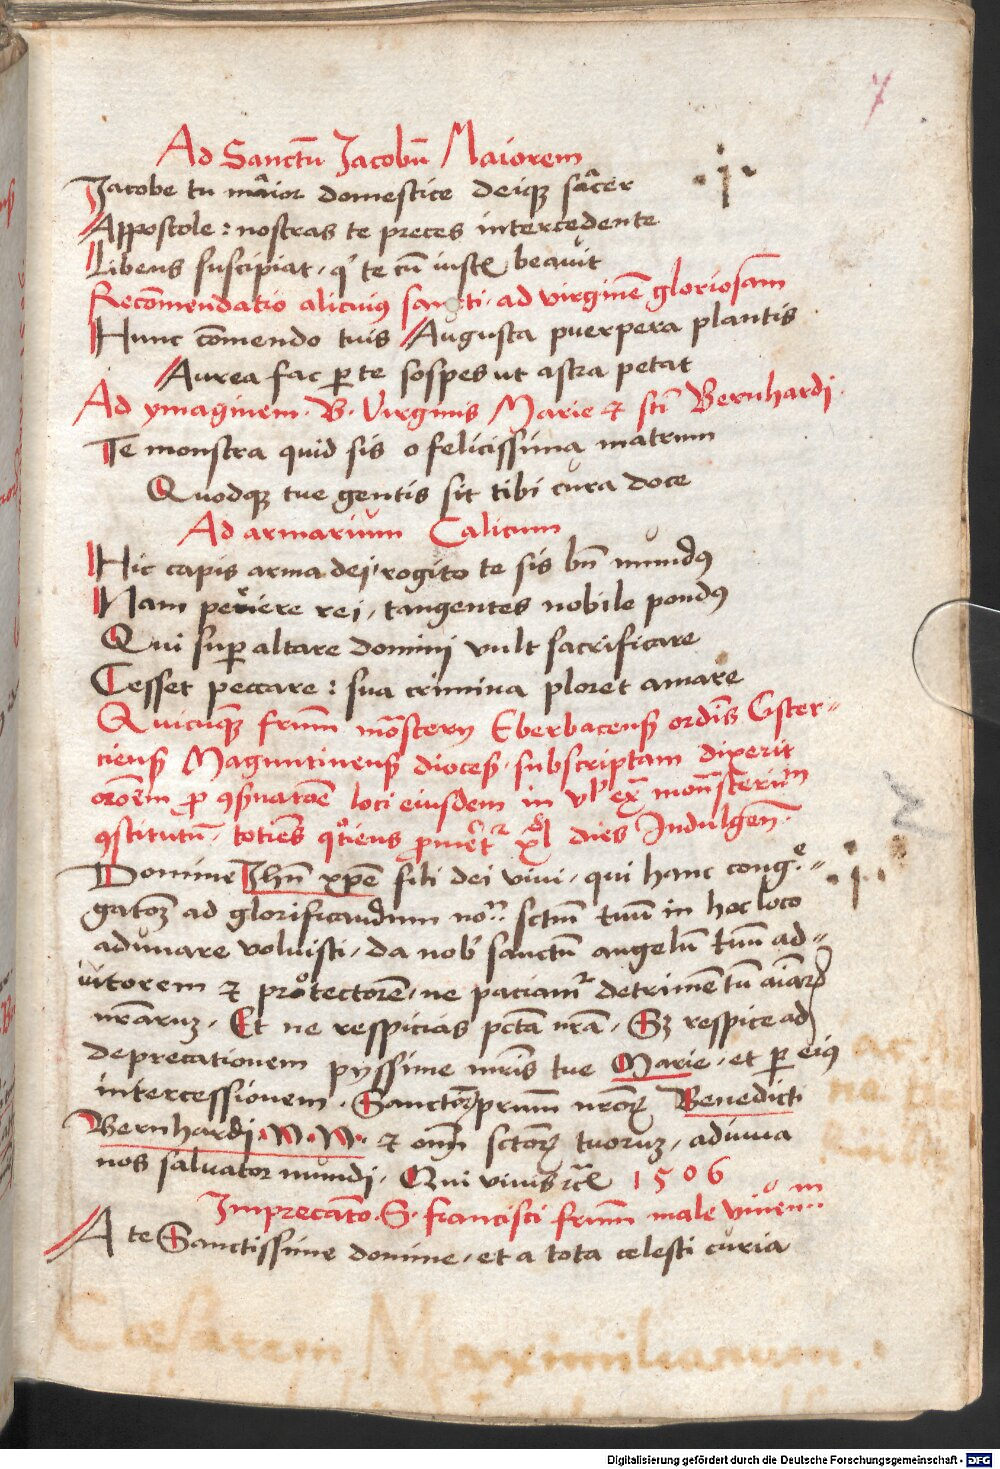 7
Ad Sanctū Jacobū Maiorem
Jacobe tu maior domestice deiqꝫ sacer
Appostole : nostras te preces intercedente
Libens suscipiat, qͥ te cū iustꝭ beavit
Recōmendatio alicuiꝰ sancti, ad virginē gloriosam
Hunc cōmendo tuis Augusta puerpera plantis
Aurea fac ꝑ te sospes ut astra petat
Ad ymaginem . B . Virginis Marie ⁊ scti Bernhardi .
Te monstra quid sis o felicissima matrum
Quodqꝫ tue gentis sit tibi cura doce
Ad armarium Calicum
Hic capis arma dei, rogito te sis bn̄ mundꝰ
Nam periere rei, tangentes nobile pondꝰ
Qui suꝑ altare dominj vult sacrificare
Cesset peccare : sua crimina ploret amare
Quicūqꝫ frm̄ mōstery Eberbacenß ordīs Cyster-
cienß Maguntinenß diocesß . subscriptam dixerit
orōem ꝓ ꝯsṽatōe loci eiusdem in vl̕ ex̄ monasterium
ꝯstitutū, totiēs qͦtiens ꝓm̄et̉ xl dies Indulgen̄ .
Domine Ihū xp̄e fili dei vivi, qui hanc cong̾e-
gatōꝫ ad glorificandum no: sctm̄ tuū in hoc loco
adunare voluisti, da nob̕ sanctū angelū tuū ad-
iutorem ⁊ protectorē, ne paciamͬ detrimētū aīarꝝ
nr̄aruꝫ, Et ne respicias pctā nr̄a, Sꝫ respice ad
deprecationem pyssime mr̄is tue Marie, et ꝑ eiꝰ
intercessionem, Sanctorꝝ prum̄ nr̄orꝝ Benedicti
Bernhardi . N . N . ⁊ om̄ sctorꝝ tuoruꝫ, adiuua
nos saluator mundi, Qui viuis ⁊cꝭ 1506
Imprecātō . S . francisci frm̄ male viuēn
A te Sanctissime domine, et a tota celesti curia
Cæsarem Maximilianum .
Digitalisierung gefördert durch die Deutsche Forschungsgemeinschaft - DFG